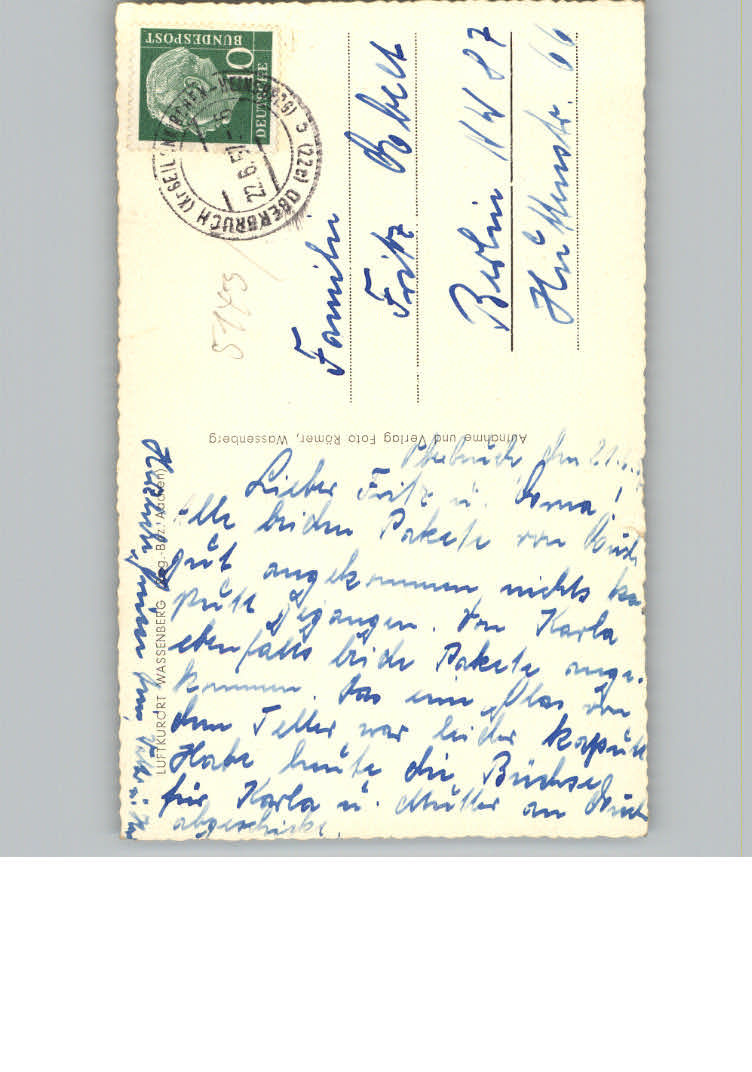 DEUTSCHE
BUNDESPOST
10
(22c) OBERBRUCH (Kr GEILENKIRCHEN-HEINSBERG) c
22.6.57
5143
Familie
Fritz
Berlin NW 87
Huttenstr. 66
Aufnahme und Verlag Foto Römer, Wassenberg
LUFTKURORT WASSENBERG (Reg.-Bez. Aachen)
Oberbruch den 21.
Lieber Fritz u. Erna!
Alle beiden Pakete von Euch
gut angekommen nichts ka-
putt gegangen. Von Karla
ebenfalls beide Pakete ange-
kommen. Das eine Glas von
dem Teller war leider kaputt
Habe heute die Büchse
für Karla u. Mutter an Euch
abgeschickt.
Herzliche Grüsse